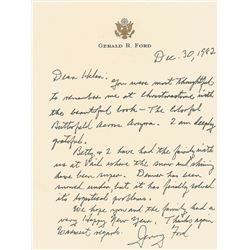 GERALD R. FORD
Dec. 30, 1982
Dear Helen:
you were most thoughtful
to remember me at Christmastime with
the beautiful book - The Colorful
Butterfield Across Arizona. I am deeply
grateful.
Betty & I have had the family with
us at Vail where the snow and skiing
have been super. Denver has been
snowed under but it has finally solved
its logistical problems.
We hope you and the family had a
very Happy New Year. Thanks again
Warmest regards.
Jerry Ford